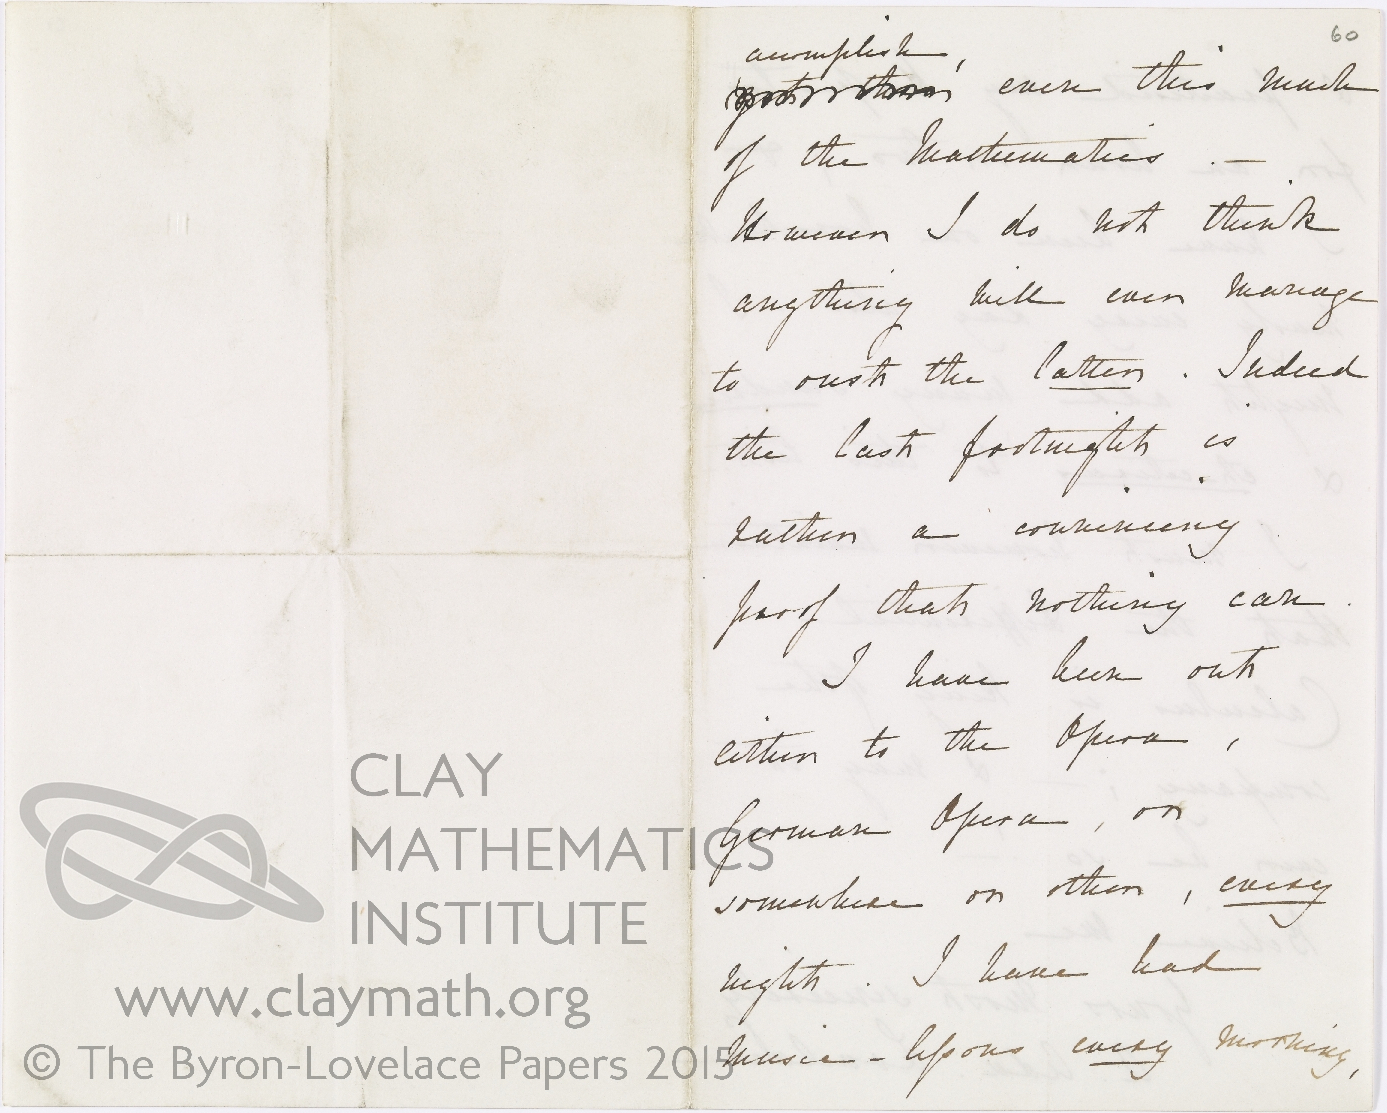 60
accomplish,
even this much
of the Mathematics. —
However I do not think
anything will ever manage
to oust the latter. Indeed
the last fortnight is
rather a convincing
proof that nothing can.
I have been out
either to the Opera,
German Opera, or
somewhere or other, every
night. I have had
music-lessons every morning,
CLAY
MATHEMATICS
INSTITUTE
www.claymath.org
© The Byron-Lovelace Papers 2015